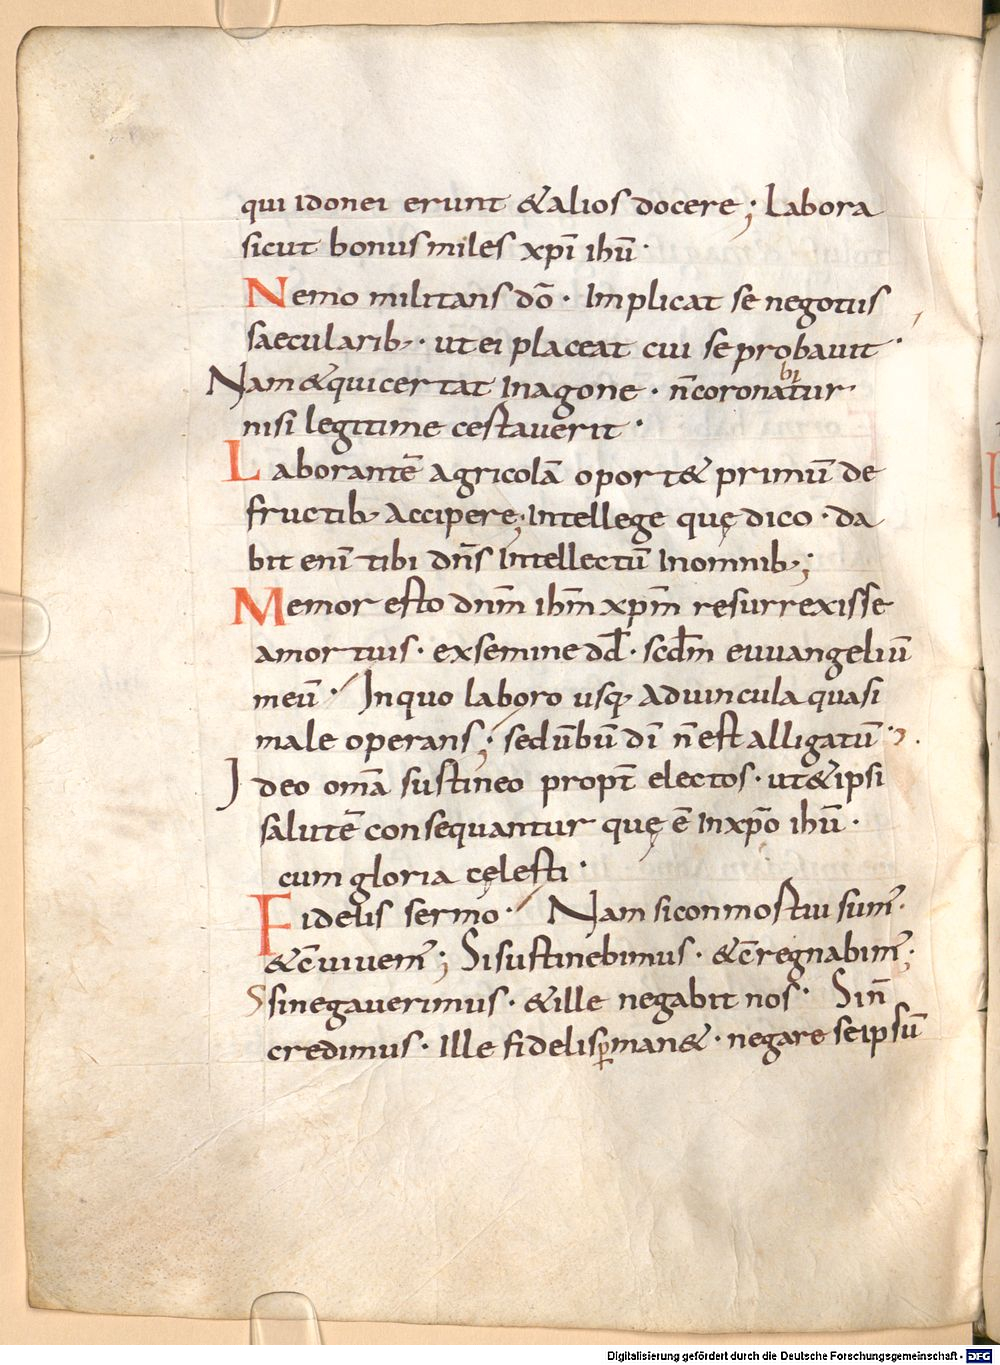 qui idonei erunt & alios docere; Labora
sicut bonus miles xp̄i ih̄u·
Nemo militans dō· Implicat se negotiis
saecularib;· ut ei placeat cui se probavit·
Nam & qui certat In agone· n̄ coronabitur·
nisi legitime certaverit·
Laborantē agricolā oport& primū de
fructib; Accipere; Intellege quę dico· da
bit enī tibi dn̄s Intellectū In omnib;;
Memor esto dnm̄ ihm̄ xpm̄ resurrexisse
a mortuis· ex semine dd̄· scdm̄ euuangeliū
meū· In quo laboro usq; Ad vincula quasi
male operans; sed ūbū dī n̄ est alligatū·
Ideo om̄a sustineo propt̄ electos· ut & ipsi
salutē consequantur quę ē In xp̄o ih̄u·
cum gloria cęlesti·
Fidelis sermo· Nam si conmostui sum̄·
& c̄vivem̄; Si sustinebimus· & c̄regnabim̄;
Ssi negaverimus· & ille negabit nos· Si n̄
credimus· Ille fidelis p̱man&· negare seipsū
Digitalisierung gefördert durch die Deutsche Forschungsgemeinschaft - DFG